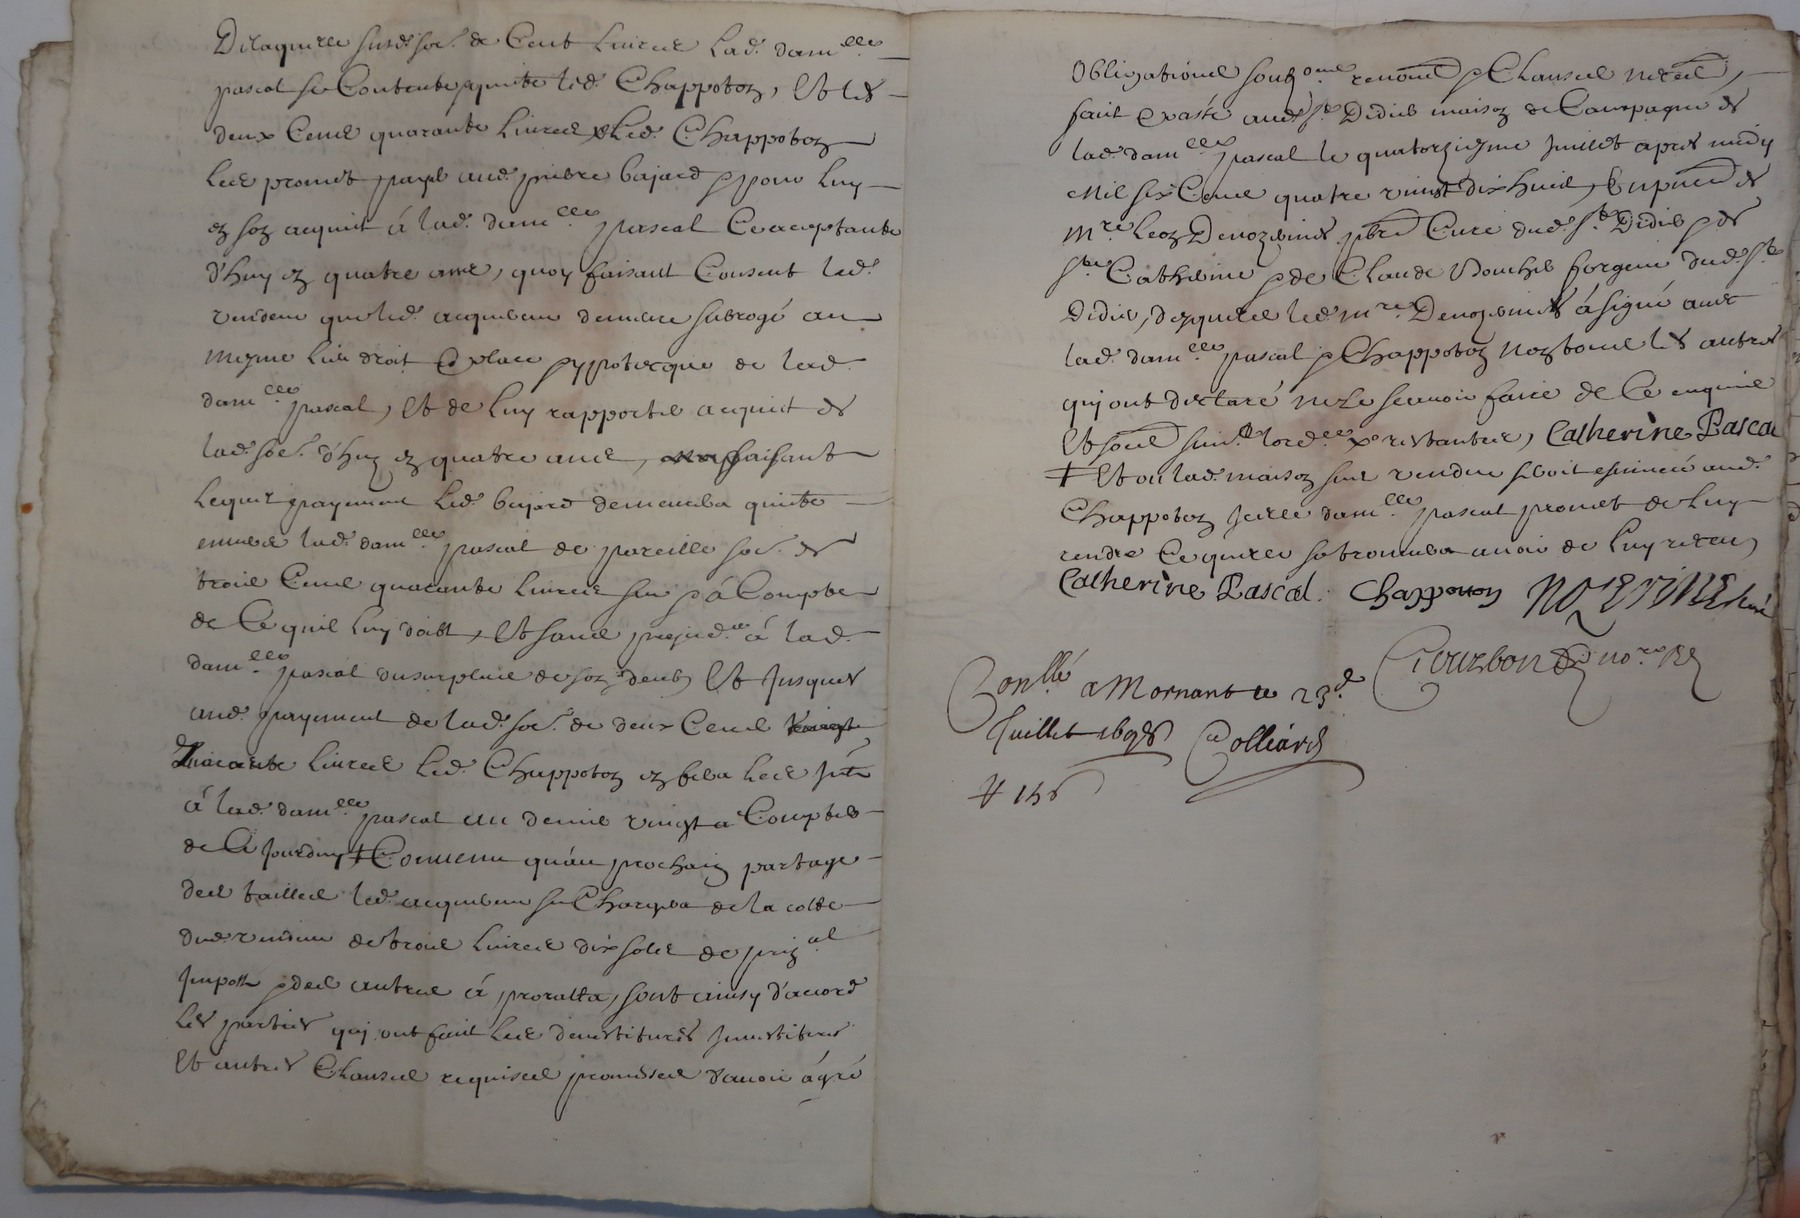 De laquelle susd. so.e de Cent livres lad. dam.elle
pascal se Contente & quitte led. Chappoton, Et les
deux Cens quarante livres led. Chappoton
les promet payer aud. pierre bajard & pour luy
en son acquit à lad. dam.elle pascal Ce acceptante
d'huy en quatre ans, quoy faisant Consent led.
vendeur que led. acquereur demeure subrogé au
mesme lieu droit & place & ypotecque de lad.
dam.elle pascal, Et de luy rapporter acquit de
lad. so.e d'huy en quatre ans, faisant
lequel payement led. bajard demeurera quitte
envers lad. dam.elle pascal de pareille so.e de
trois Cens quarante livres sur & à Compte
de Ce qu'il luy doibt, Et sans prejud.ce à lad.
dam.elle pascal du surplus de son deub, Et Jusques
aud. payement de lad. so.e de deux Cens
quarante livres led. Chappoton en fera les Jnt.
à lad. dam.elle pascal au denier vingt a Compter
de Ce Jourdhuy + Convenu qu'au prochain partage
des tailles led. acquereur se Chargera de la cotte
dud. vendeur de trois livres dix sols de prin.al
Impost & des autres à proratta, sont ainsy d'accord
les parties qui ont fait les devestitures Jnvestitures
Et autres Clauses requises promesses d'avoir à gré
Obligations renon.on & Clauses neces.,
fait & passé aud. S.t Didier maison de Campagne de
lad. dam.elle pascal le quatorziesme Juillet apres midy
Mil six Cens quatre vingt dix huit, En pnce de
m.re Leon Denozerines p.bre Curé dud. S.t Didier & de
S.te Catherine & de Claude forgeur dud. S.t
Didier, desquels led. m.re Denozerines à signé avec
lad. dam.elle pascal & Chappoton non tous les autres
qui ont declaré ne le scavoir faire de Ce enquis
Et suiv.t lord.ce restantes, Catherine Pascal
+ Et ou lad. maison sus vendue seroit evincée aud.
Chappoton Jcelle dam.elle pascal promet de luy
rendre Ce qu'elle se trouvera avoir de luy receu,
Catherine Pascal. Chappotton NOZERINES Curé
Gourbon no.re R.
Conllé a Mornant le 23.e
Juillet 1698 Colliard
# 156